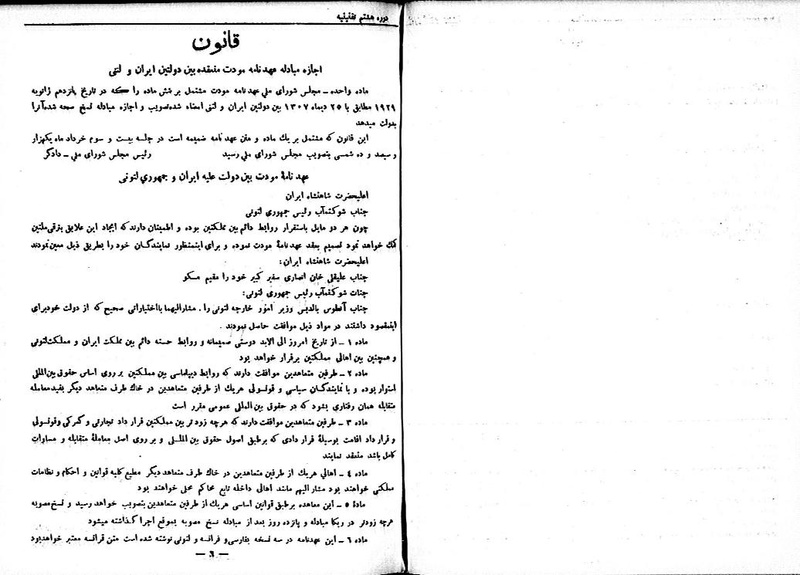 دوره هشتم تقنینیه
قانون
اجازه مبادله عهدنامه مودت منعقده بین دولتین ایران و لتنی
ماده واحده – مجلس شورای ملی عهدنامه مودت مشتمل بر شش ماده را که در تاریخ پانزدهم ژانویه
۱۹۲۹ مطابق با ۲۵ دیماه ۱۳۰۷ بین دولتین ایران و لتنی امضاء شده تصویب و اجازه مبادله نسخ صحه شده آنرا
بدولت میدهد
این قانون که مشتمل بر یك ماده و متن عهد نامه ضمیمه است در جلسه بیست و سوم خرداد ماه یکهزار
و سیصد و ده شمسی بتصویب مجلس شورای ملی رسید رئیس مجلس شورای ملی – دادگر
عهد نامهٔ مودت بین دولت علیه ایران و جمهوری لتونی
اعلیحضرت شاهنشاه ایران
جناب شوکتمآب رئیس جمهوری لتونی
چون هر دو مایل باستقرار روابط دائم بین مملکتین بوده و اطمینان دارند که ایجاد این علایق بترقی ملتین
کمك خواهد نمود تصمیم بعقد عهدنامهٔ مودت نموده و برای اینمنظور نمایندگان خود را بطریق ذیل معین نمودند
اعلیحضرت شاهنشاه ایران:
جناب علیقلی خان انصاری سفیر کبیر خود را مقیم مسکو
جناب شوکتمآب رئیس جمهوری لتونی:
جناب آنطوس بالدیس وزیر امور خارجه لتونی را. مشارالیهما با اختیاراتی صحیح که از دولت خود برای
اینمقصود داشتند در مواد ذیل موافقت حاصل نمودند .
ماده ۱ – از تاریخ امروز الی الابد دوستی صمیمانه و روابط حسنه دائم بین مملکت ایران و مملکت لتونی
و همچنین بین اهالی مملکتین برقرار خواهد بود
ماده ۲– طرفین متعاهدین موافقت دارند که روابط دیپلماسی بین مملکتین بر روی اساس حقوق بین المللی
استوار بوده و با نمایندگان سیاسی و قونسولی هریك از طرفین متعاهدین در خاك طرف متعاهد دیگر بقید معامله
متقابله همان رفتاری بشود که در حقوق بین المللی عمومی مقرر است
ماده ۳ – طرفین متعاهدین موافقت دارند که هرچه زودتر بین مملکتین قرار داد تجارتی و گمرکی و قونسولی
و قرار داد اقامت بوسیلهٔ قراردادی که برطبق اصول حقوق بین المللی و بر روی اصل معاملهٔ متقابله و مساوات
کامل باشد منعقد نمایند
ماده ٤ – اهالی هریك از طرفین متعاهدین در خاك طرف متعاهد دیگر مطیع کلیه قوانین و احکام و نظامات
مملکتی خواهند بود مشارالیهم مانند اهالی داخله تابع محاکم محلی خواهند بود
مادهٔ ٥ – این معاهده برطبق قوانین اساسی هریك از طرفین متعاهدین بتصویب خواهد رسید و نسخ مصوبه
هرچه زودتر در ریگا مبادله و پانزده روز بعد از مبادله نسخ مصوبه بموقع اجرا گذاشته میشود
ماده ٦ – این عهدنامه در سه نسخه بفارسی و فرانسه و لتونی نوشته شده است متن فرانسه معتبر خواهد بود